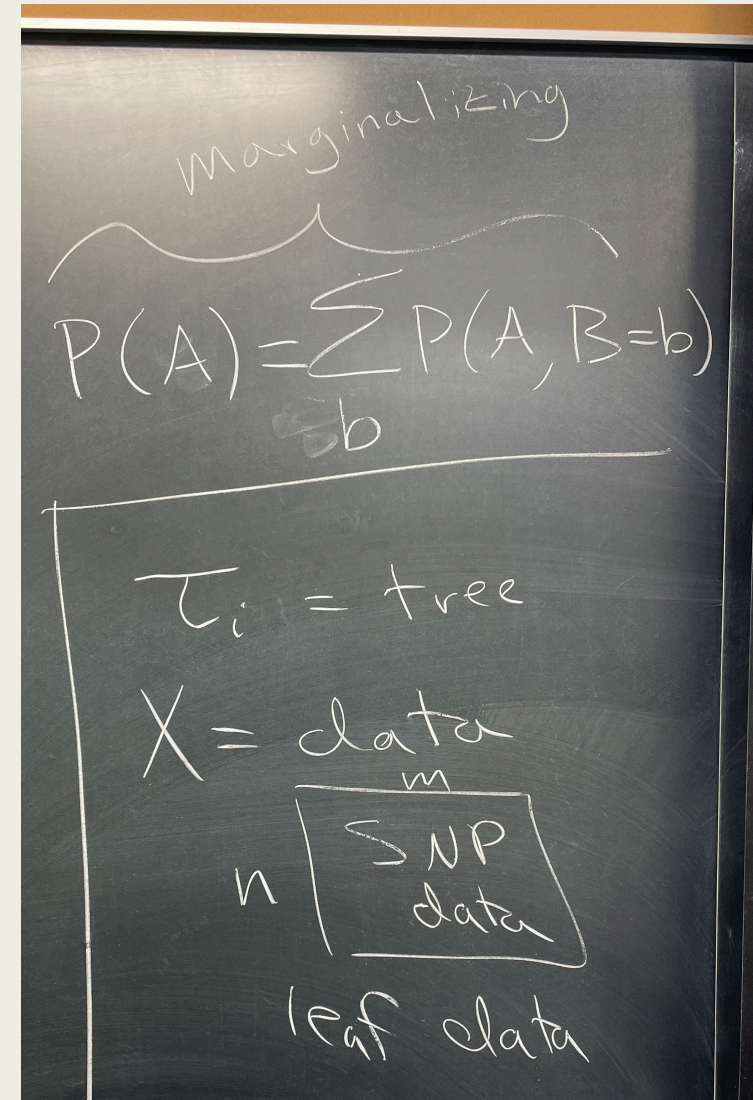 marginalizing
P(A) = Σ P(A, B=b)
b
τᵢ = tree
X = data
m
n
SNP
data
leaf data